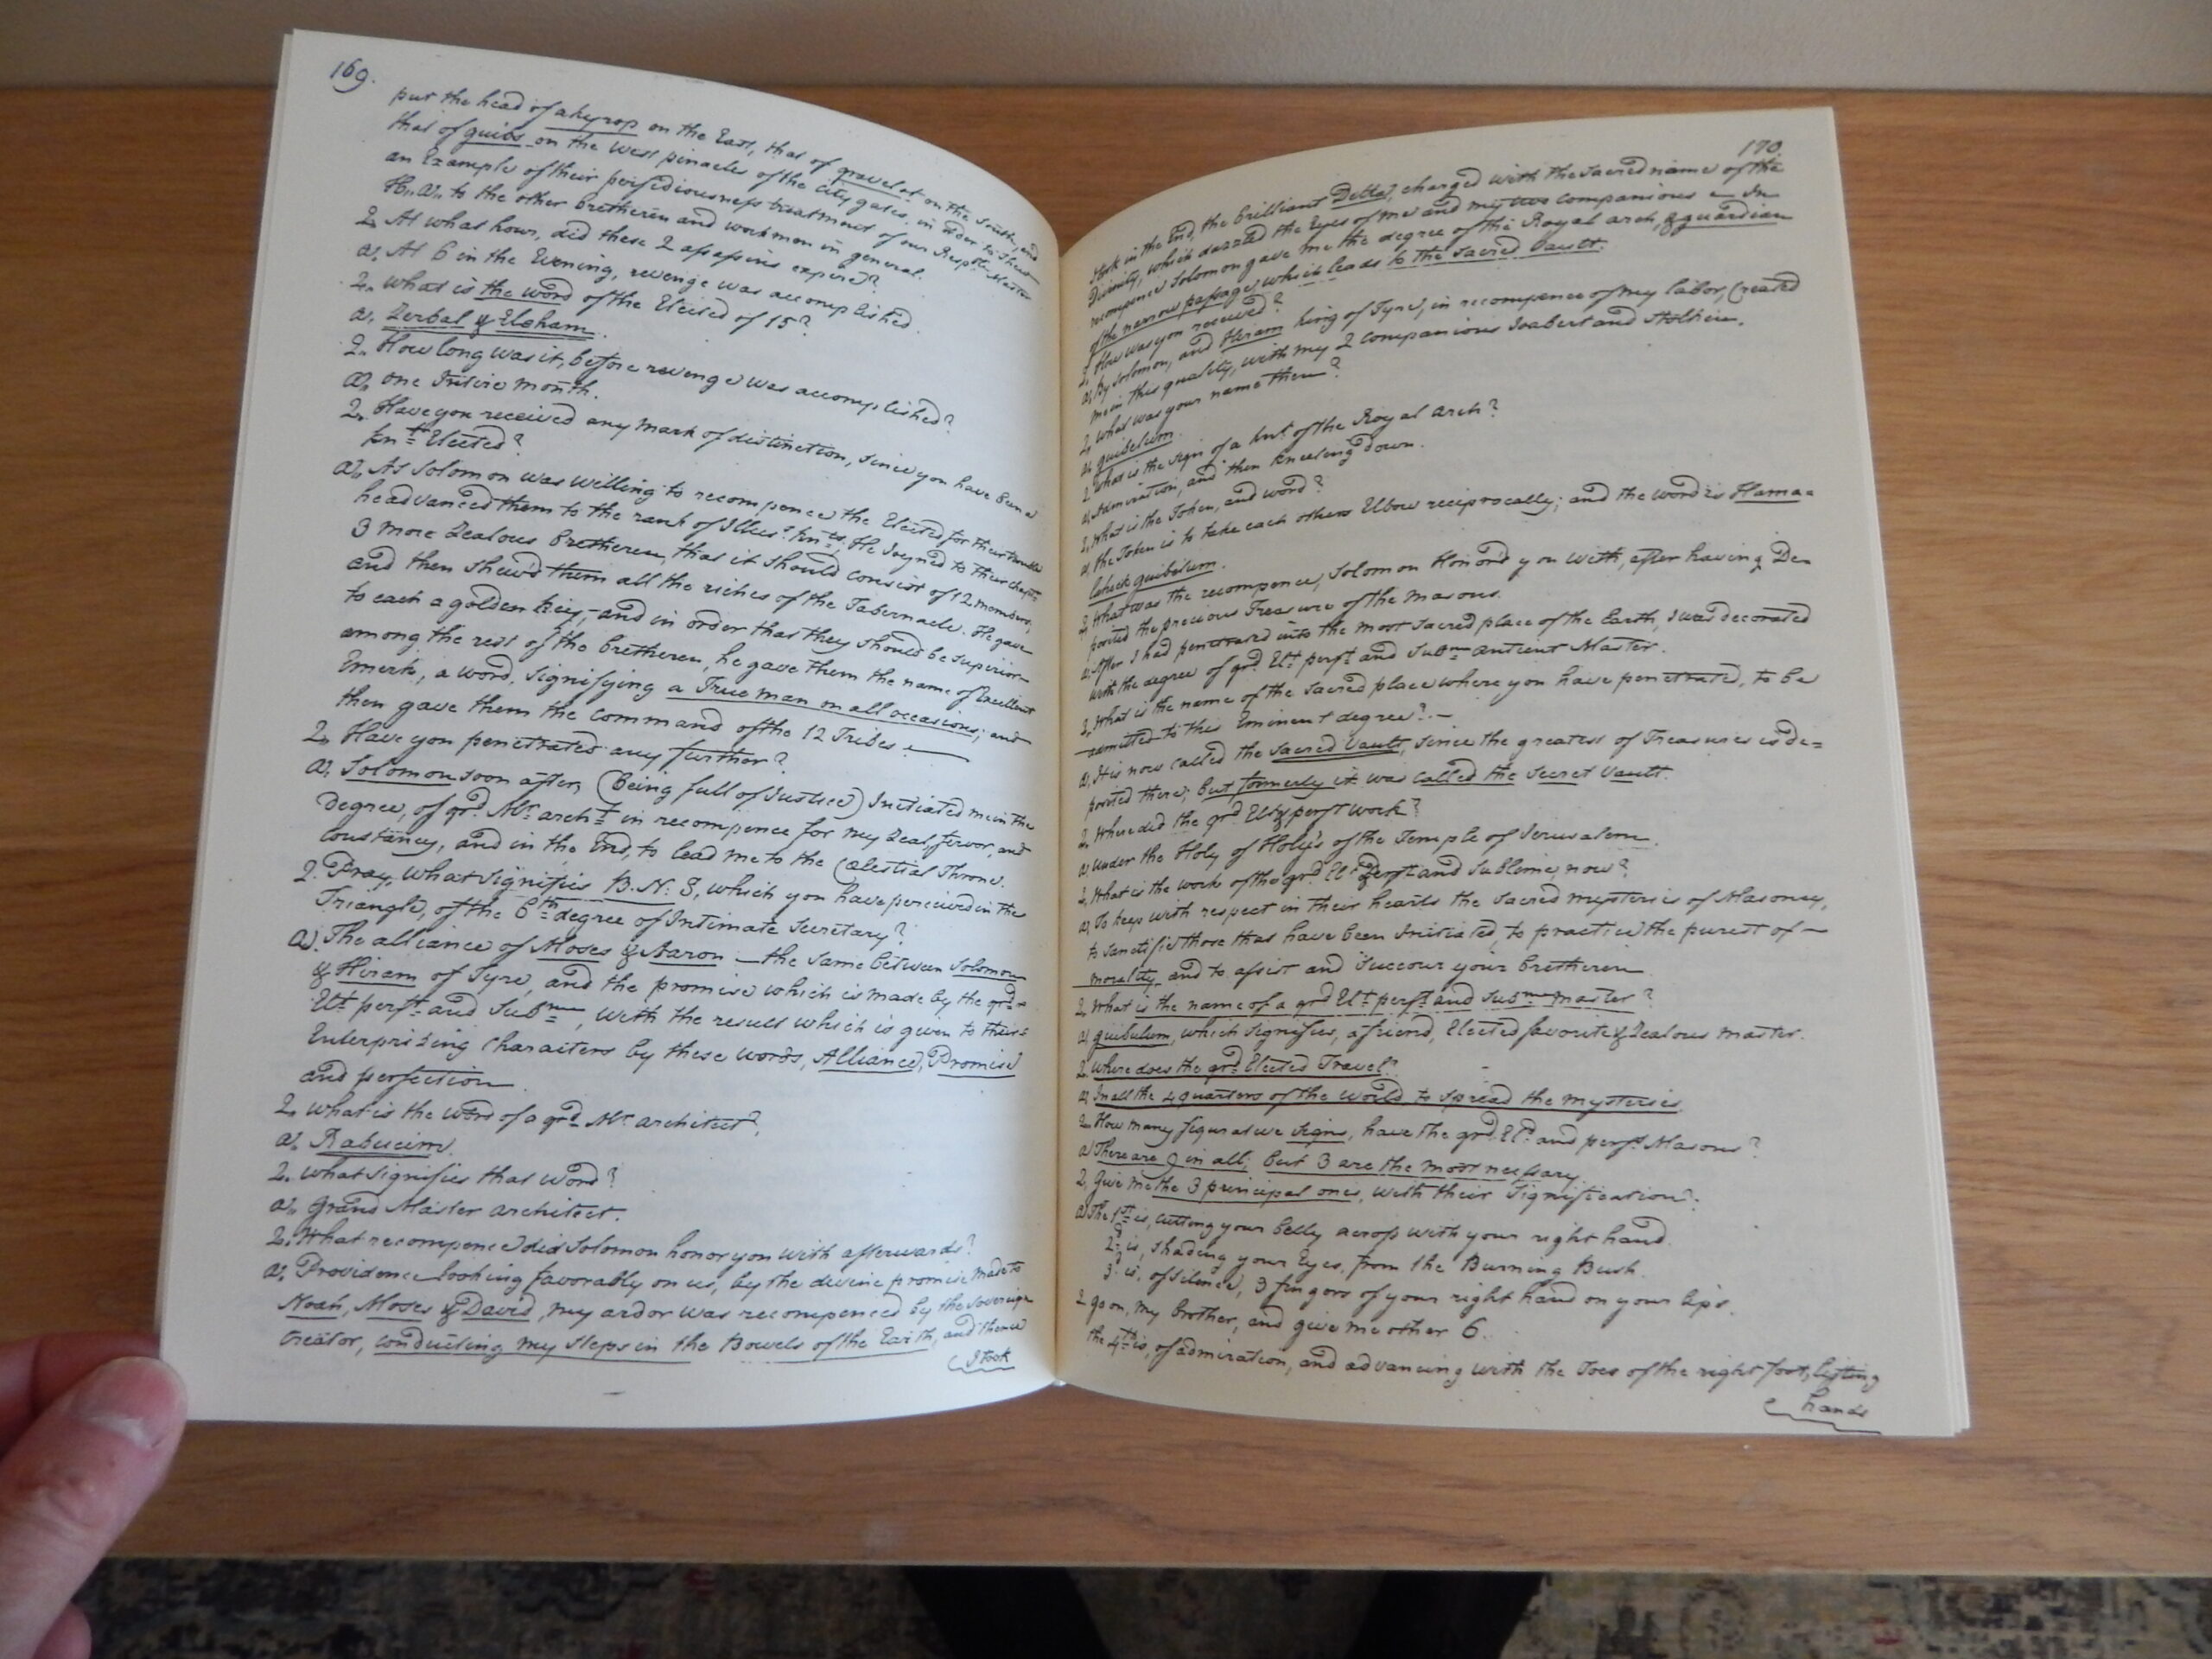 169.
put the head of akyrop on the East, that of gravelot on the South, and
that of guibs on the West pinacles of the city gates, in order to shew
an Example of their perfidiousness treatment of our Respble Master
H.. A.. to the other bretheren and workmen in general.
Q. At what hour, did these 2 assassins expire?
A. At 6 in the Evening, revenge was accomplished.
Q. What is the word of the Elected of 15?
A. Zerbal & Eloham.
Q. How long was it, before revenge was accomplished?
A. One Intire month.
Q. Have you received any mark of distinction, since you have been a
Knt Elected?
A. As Solomon was willing to recompence the Elected for their trouble
he advanced them to the rank of Illus: Knts; He Joyned to their chaptr
3 more Zealous Bretheren, that it should consist of 12 members,
and then shew'd them all the riches of the Tabernacle. He gave
to each a golden Key, and in order that they should be superior
among the rest of the bretheren, he gave them the name of Excellent
Emerk, a word, signifying a True man on all occasions; and
then gave them the command of the 12 Tribes.
Q. Have you penetrated any further?
A. Solomon soon after, (being full of Justice) Initiated me in the
Degree, of grd Mr archt in recompence for my Zeal, fervor, and
constancy, and in the End, to lead me to the Celestial Throne.
Q. Pray, what signifies B.N.S, which you have perceived in the
Triangle, of the 6th degree of Intimate Secretary?
A. The alliance of Moses & Aaron — the same between Solomon
& Hiram of Tyre, and the promise which is made by the grd
Elt perft and Subme, with the result which is given to their
Enterprizing Characters by these words, Alliance, Promise
and perfection.
Q. What is the word of a grd Mr architect?
A. Rabucim.
Q. What signifies that word?
A. Grand Master architect.
Q. What recompence did Solomon honor you with afterwards?
A. Providence looking favorably on us, by the divine promise made to
Noah, Moses & David, my ardor was recompenced by the sovereign
Creator, conducting my steps in the Bowels of the Earth, and thence
I took
170.
took in the End, the brilliant Delta, charged with the Sacred name of the
Divinity, which dazzled the Eyes of me and my two companions — In
recompence Solomon gave me the degree of the Royal arch, & guardian
of the narrow passage which leads to the Sacred Vault.
Q. How was you received?
A. By Solomon, and Hiram King of Tyre, in recompence of my labor, Created
me in this quality, with my 2 companions Joabert and Stolkin.
Q. What was your name then?
A. guibulum.
Q. What is the sign of a Knt of the Royal Arch?
A. Admiration, and then kneeling down.
Q. What is the Token, and word?
A. The Token is to take each others Elbow reciprocally; and the word is Hama=
lchek guibulum.
Q. What was the recompence, Solomon Honor'd you with, after having De=
posited the precious Treasure of the Masons.
A. After I had penetrated into the most Sacred place of the Earth, I was decorated
with the degree of grd Elt perft and Subme antient Master.
Q. What is the name of the Sacred place where you have penetrated, to be
admitted to this Eminent degree? —
A. It is now called the Sacred Vault, since the greatest of Treasures is de=
posited there; but formerly it was called the Secret Vault.
Q. Where did the grd Elt & perft work?
A. Under the Holy of Holy's of the Temple of Jerusalem.
Q. What is the work of the grd Elt perft and Sublime, now?
A. To keep with respect in their hearts the Sacred mysteries of Masonry,
to Sanctifie those that have been Initiated, to practice the purest of —
morality, and to assist and Succour your bretheren.
Q. What is the name of a grd Elt perft and Subme master?
A. guibulum, which signifies, a friend, Elected favorite & Zealous master.
Q. Where does the grd Elected Travel?
A. In all the 4 quarters of the World to spread the mysteries.
Q. How many figurative Signs, have the grd Eltd and perft Masons?
A. There are 9 in all, but 3 are the most necessary.
Q. Give me the 3 principal ones, with their Signification.
A. The 1st is, cutting your belly across with your right hand.
2d is, shading your Eyes, from the Burning Bush.
3 is, of silence, 3 fingers of your right hand on your lips.
Q. go on, my brother, and give me other 6.
the 4th is, of admiration, and advancing with the Toes of the right foot, lifting
hands